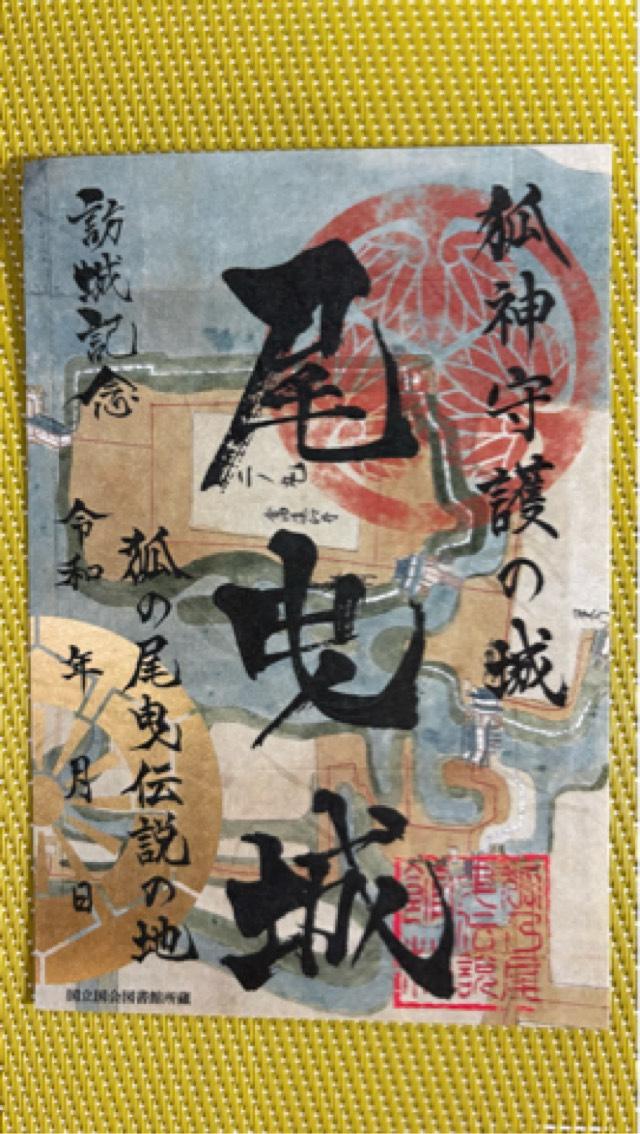 狐神守護の城
尾曳城
狐の尾曳伝説の地
訪城記念
令和 年 月 日
二ノ丸
国立国会図書館所蔵